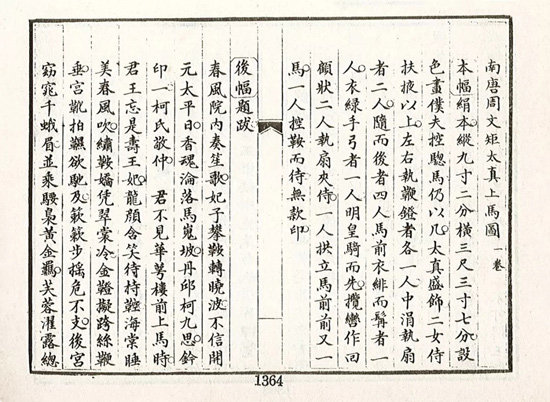 南唐周文矩太真上馬圖 一卷
本幅絹本縱九寸二分橫三尺三寸七分設
色畫僕夫控驄馬仍以几太真盛飾二女侍
扶掖以上左右執鞭鐙者各一人中涓執扇
者二人隨而後者四人馬前衣緋而髯者一
人衣綠手弓者一人明皇騎而先攬轡作回
顧狀二人執扇夾侍一人拱立馬前前又一
馬一人控鞍而待無款印
後幅題跋
春風院內奏笙歌妃子攀鞍轉曉波不信開
元太平日香魂淪落馬嵬坡丹邱柯九思鈐
印一柯氏敬仲 君不見華萼樓前上馬時
君王忘是壽王妃龍顏含笑待持鞚海棠睡
美春風吹繡鞍嬌凭翠棠冷金鐙擬跨絲鞭
垂宮靴拍飆欲馳及蔌蔌步搖危不支後宮
窈窕千蛾眉並乘騕褭黃金羈芙蓉濯露總
1364